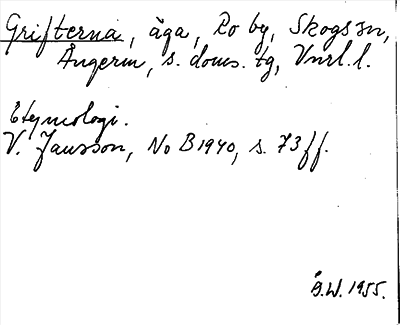 Grifterna, äga, Ro by, Skogs sn,
Ångerm, s. doms. tg, Vnrl. l.
Etymologi.
V. Jansson, NoB 1940, s. 73 ff.
Å.W. 1955.